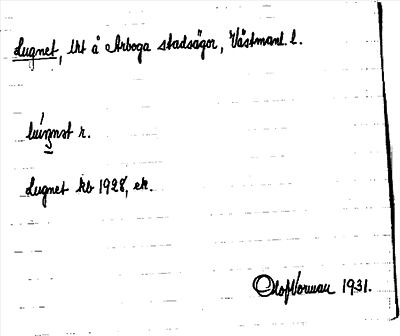 Lugnet, lht å Arboga stadsägor, Västmanl. l.
lúgnət r.
Lugnet kb 1928, ek.
Olof Vorman 1931.